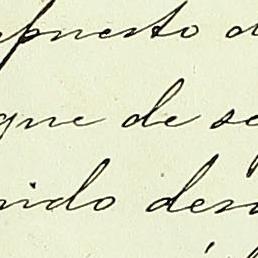 puesto d
que de se
nido des